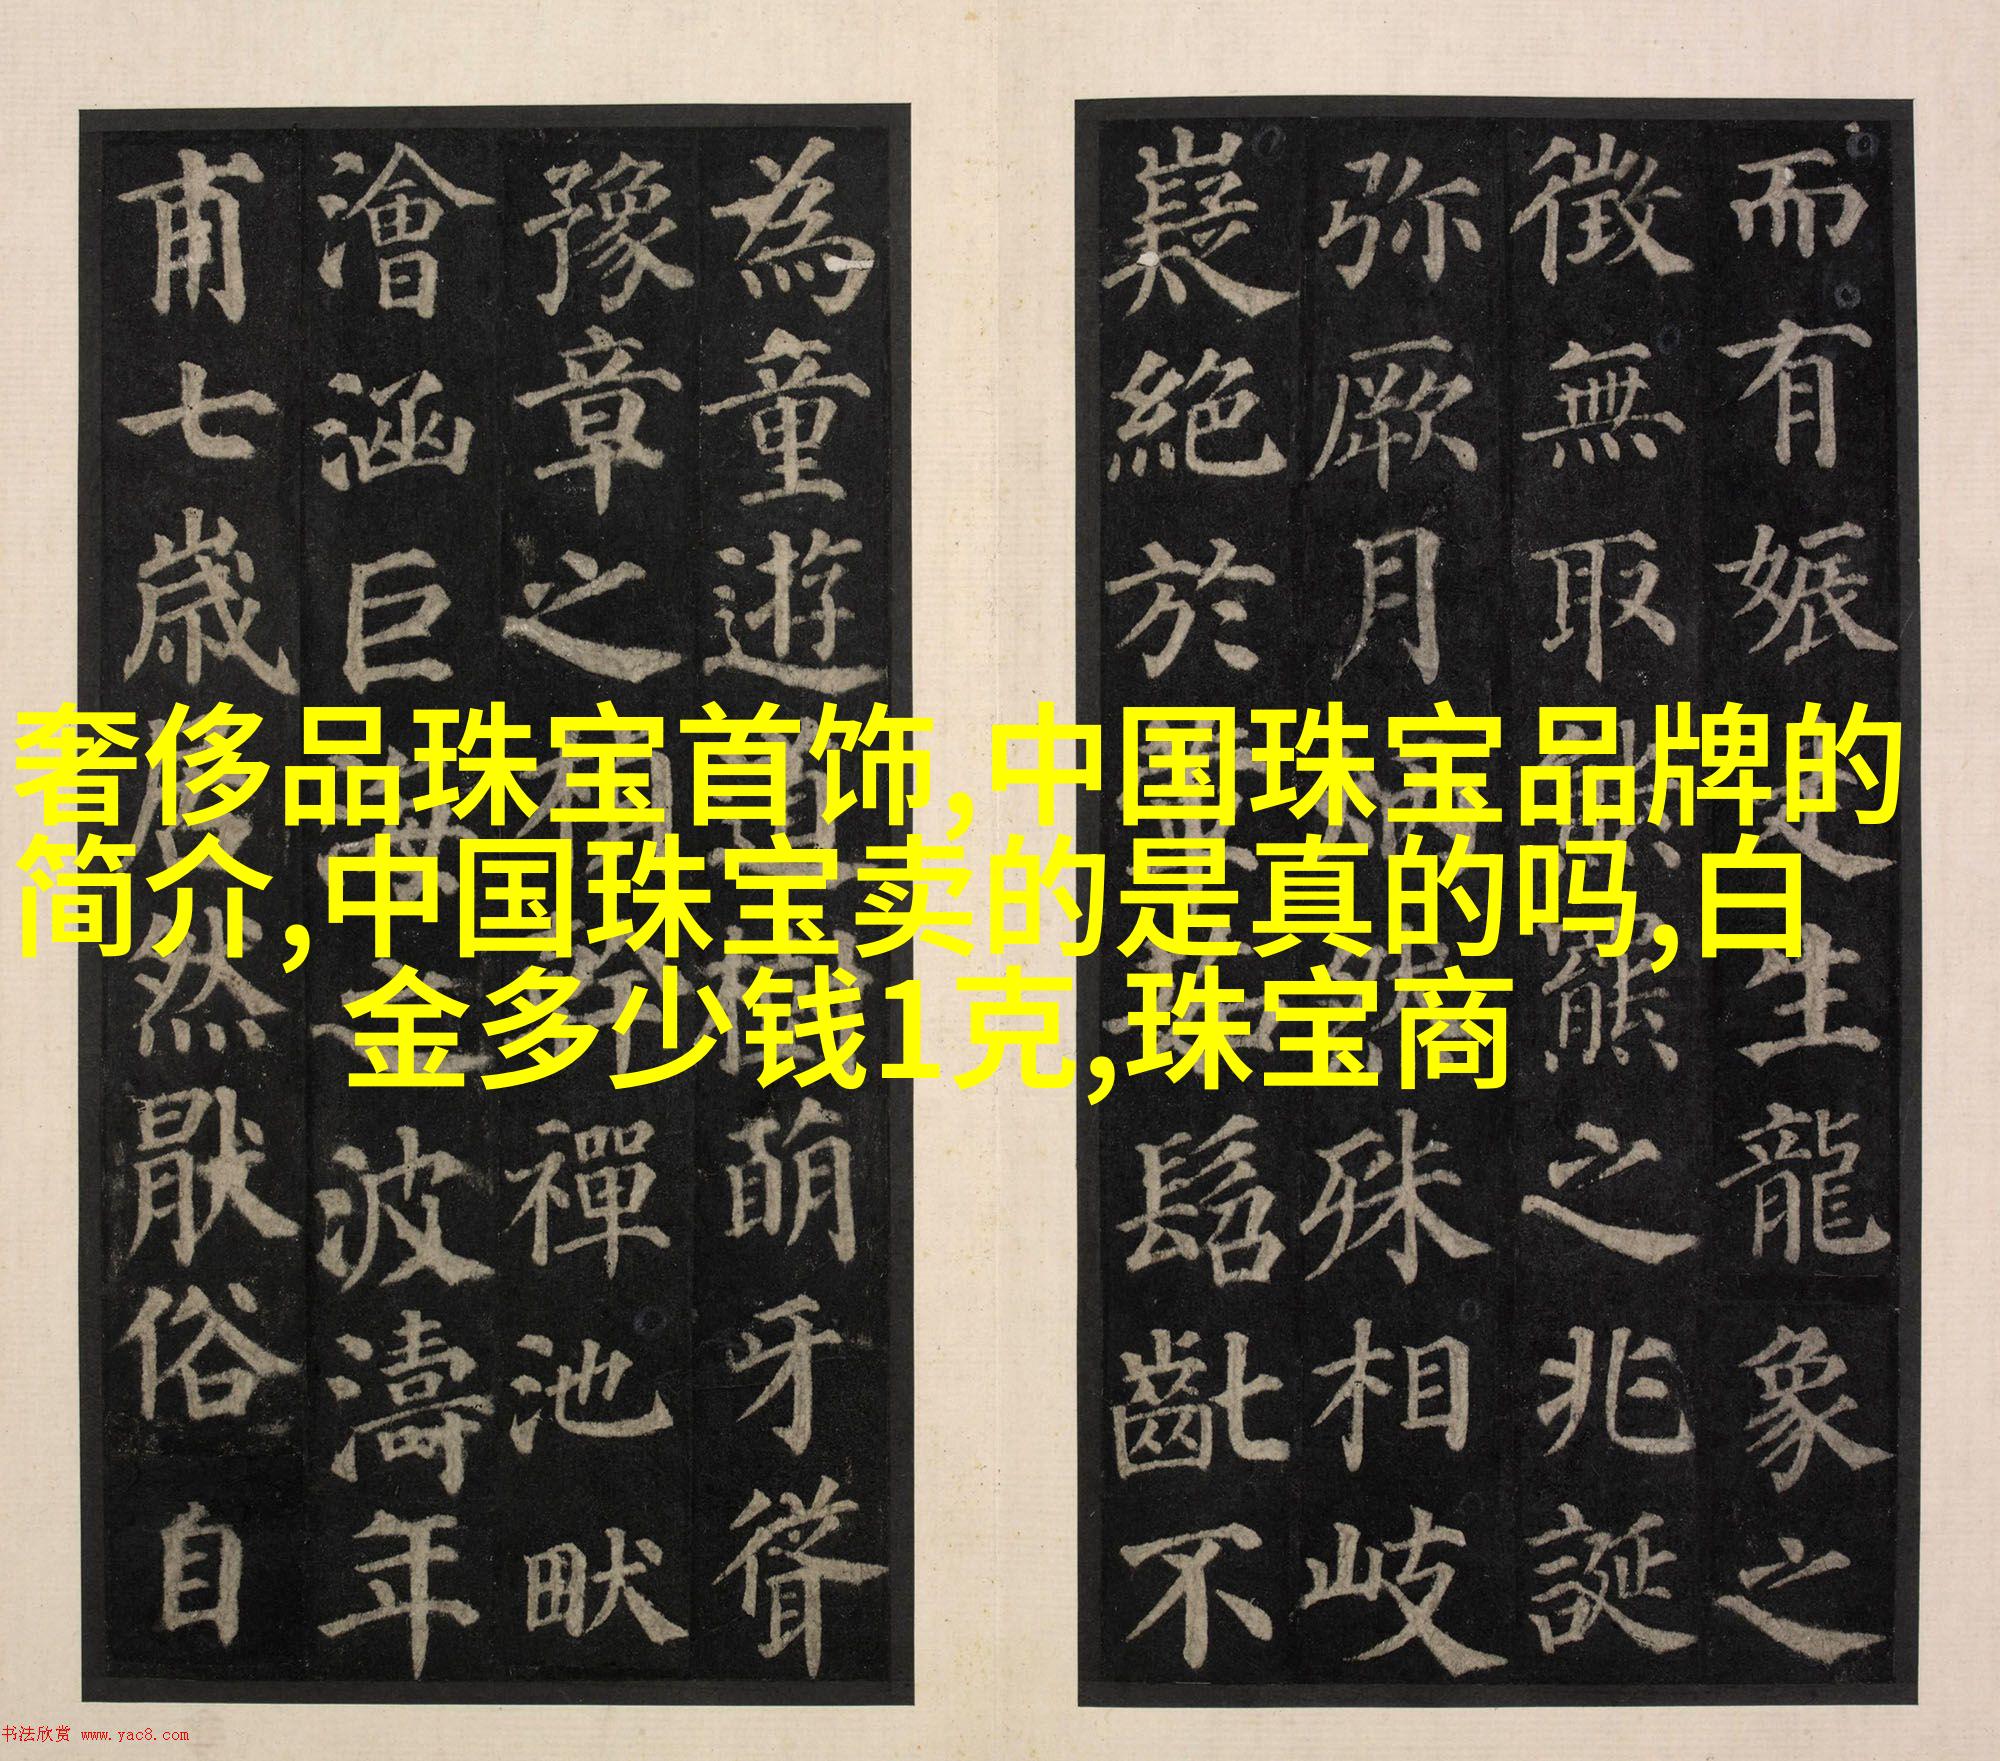 而有娠是生龍象之
徵無取熊之兆誕
弥厥月殊相岐
嶷絕於髫齔不
為童遊道樹萌牙聳
豫章之禪池畎
澮涵巨之波濤年
甫七歲居然厭俗自
奢侈品珠宝首饰,中国珠宝品牌的
简介,中国珠宝卖的是真的吗,白
金多少钱1克,珠宝商
书法欣赏 www.yac8.com